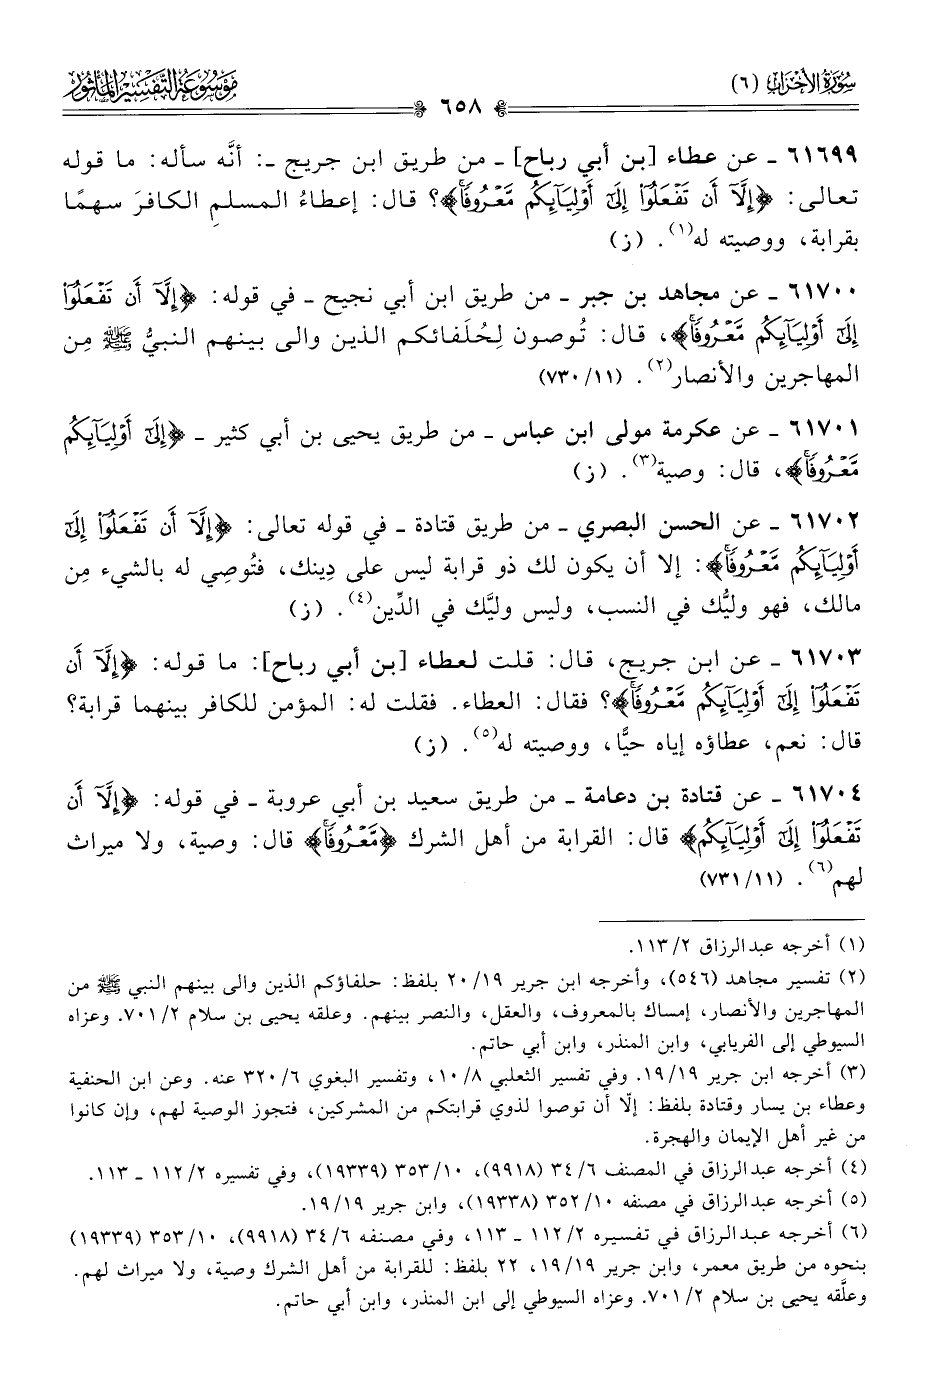 سُورَةُ الأَحْزَابِ (٦)
٦٥٨
مَوْسُوعَةُ التَّفْسِيرِ المَأْثُورِ
٦١٦٩٩ ـ عن عطاء [بن أبي رباح] ـ من طريق ابن جريج ـ: أنَّه سأله: ما قوله
تعالى: ﴿إِلَّآ أَن تَفْعَلُوٓاْ إِلَىٰٓ أَوْلِيَآئِكُم مَّعْرُوفًا﴾؟ قال: إعطاءُ المسلمِ الكافرَ سهمًا
بقرابة، ووصيته له(١). (ز)
٦١٧٠٠ ـ عن مجاهد بن جبر ـ من طريق ابن أبي نجيح ـ في قوله: ﴿إِلَّآ أَن تَفْعَلُوٓاْ
إِلَىٰٓ أَوْلِيَآئِكُم مَّعْرُوفًا﴾، قال: تُوصون لِحُلَفائكم الذين والى بينهم النبيُّ ﷺ مِن
المهاجرين والأنصار(٢). (١١/ ٧٣٠)
٦١٧٠١ ـ عن عكرمة مولى ابن عباس ـ من طريق يحيى بن أبي كثير ـ ﴿إِلَىٰٓ أَوْلِيَآئِكُم
مَّعْرُوفًا﴾، قال: وصية(٣). (ز)
٦١٧٠٢ ـ عن الحسن البصري ـ من طريق قتادة ـ في قوله تعالى: ﴿إِلَّآ أَن تَفْعَلُوٓاْ إِلَىٰٓ
أَوْلِيَآئِكُم مَّعْرُوفًا﴾: إلا أن يكون لك ذو قرابة ليس على دِينك، فتُوصِي له بالشيء مِن
مالك، فهو وليُّك في النسب، وليس وليَّك في الدِّين(٤). (ز)
٦١٧٠٣ ـ عن ابن جريج، قال: قلت لعطاء [بن أبي رباح]: ما قوله: ﴿إِلَّآ أَن
تَفْعَلُوٓاْ إِلَىٰٓ أَوْلِيَآئِكُم مَّعْرُوفًا﴾؟ فقال: العطاء. فقلت له: المؤمن للكافر بينهما قرابة؟
قال: نعم، عطاؤه إياه حيًّا، ووصيته له(٥). (ز)
٦١٧٠٤ ـ عن قتادة بن دعامة ـ من طريق سعيد بن أبي عروبة ـ في قوله: ﴿إِلَّآ أَن
تَفْعَلُوٓاْ إِلَىٰٓ أَوْلِيَآئِكُم﴾ قال: القرابة من أهل الشرك ﴿مَّعْرُوفًا﴾ قال: وصية، ولا ميراث
لهم(٦). (١١/ ٧٣١)
(١) أخرجه عبدالرزاق ٢/ ١١٣.
(٢) تفسير مجاهد (٥٤٦)، وأخرجه ابن جرير ١٩/ ٢٠ بلفظ: حلفاؤكم الذين والى بينهم النبي ﷺ من
المهاجرين والأنصار، إمساك بالمعروف، والعقل، والنصر بينهم. وعلقه يحيى بن سلام ٢/ ٧٠١. وعزاه
السيوطي إلى الفريابي، وابن المنذر، وابن أبي حاتم.
(٣) أخرجه ابن جرير ١٩/ ١٩. وفي تفسير الثعلبي ٨/ ١٠، وتفسير البغوي ٦/ ٣٢٠ عنه. وعن ابن الحنفية
وعطاء بن يسار وقتادة بلفظ: إلّا أن توصوا لذوي قرابتكم من المشركين، فتجوز الوصية لهم، وإن كانوا
من غير أهل الإيمان والهجرة.
(٤) أخرجه عبدالرزاق في المصنف ٦/ ٣٤ (٩٩١٨)، ١٠/ ٣٥٣ (١٩٣٣٩)، وفي تفسيره ٢/ ١١٢ ـ ١١٣.
(٥) أخرجه عبدالرزاق في مصنفه ١٠/ ٣٥٢ (١٩٣٣٨)، وابن جرير ١٩/ ١٩.
(٦) أخرجه عبدالرزاق في تفسيره ٢/ ١١٢ ـ ١١٣، وفي مصنفه ٦/ ٣٤ (٩٩١٨)، ١٠/ ٣٥٣ (١٩٣٣٩)
بنحوه من طريق معمر، وابن جرير ١٩/ ١٩، ٢٢ بلفظ: للقرابة من أهل الشرك وصية، ولا ميراث لهم.
وعلَّقه يحيى بن سلام ٢/ ٧٠١. وعزاه السيوطي إلى ابن المنذر، وابن أبي حاتم.